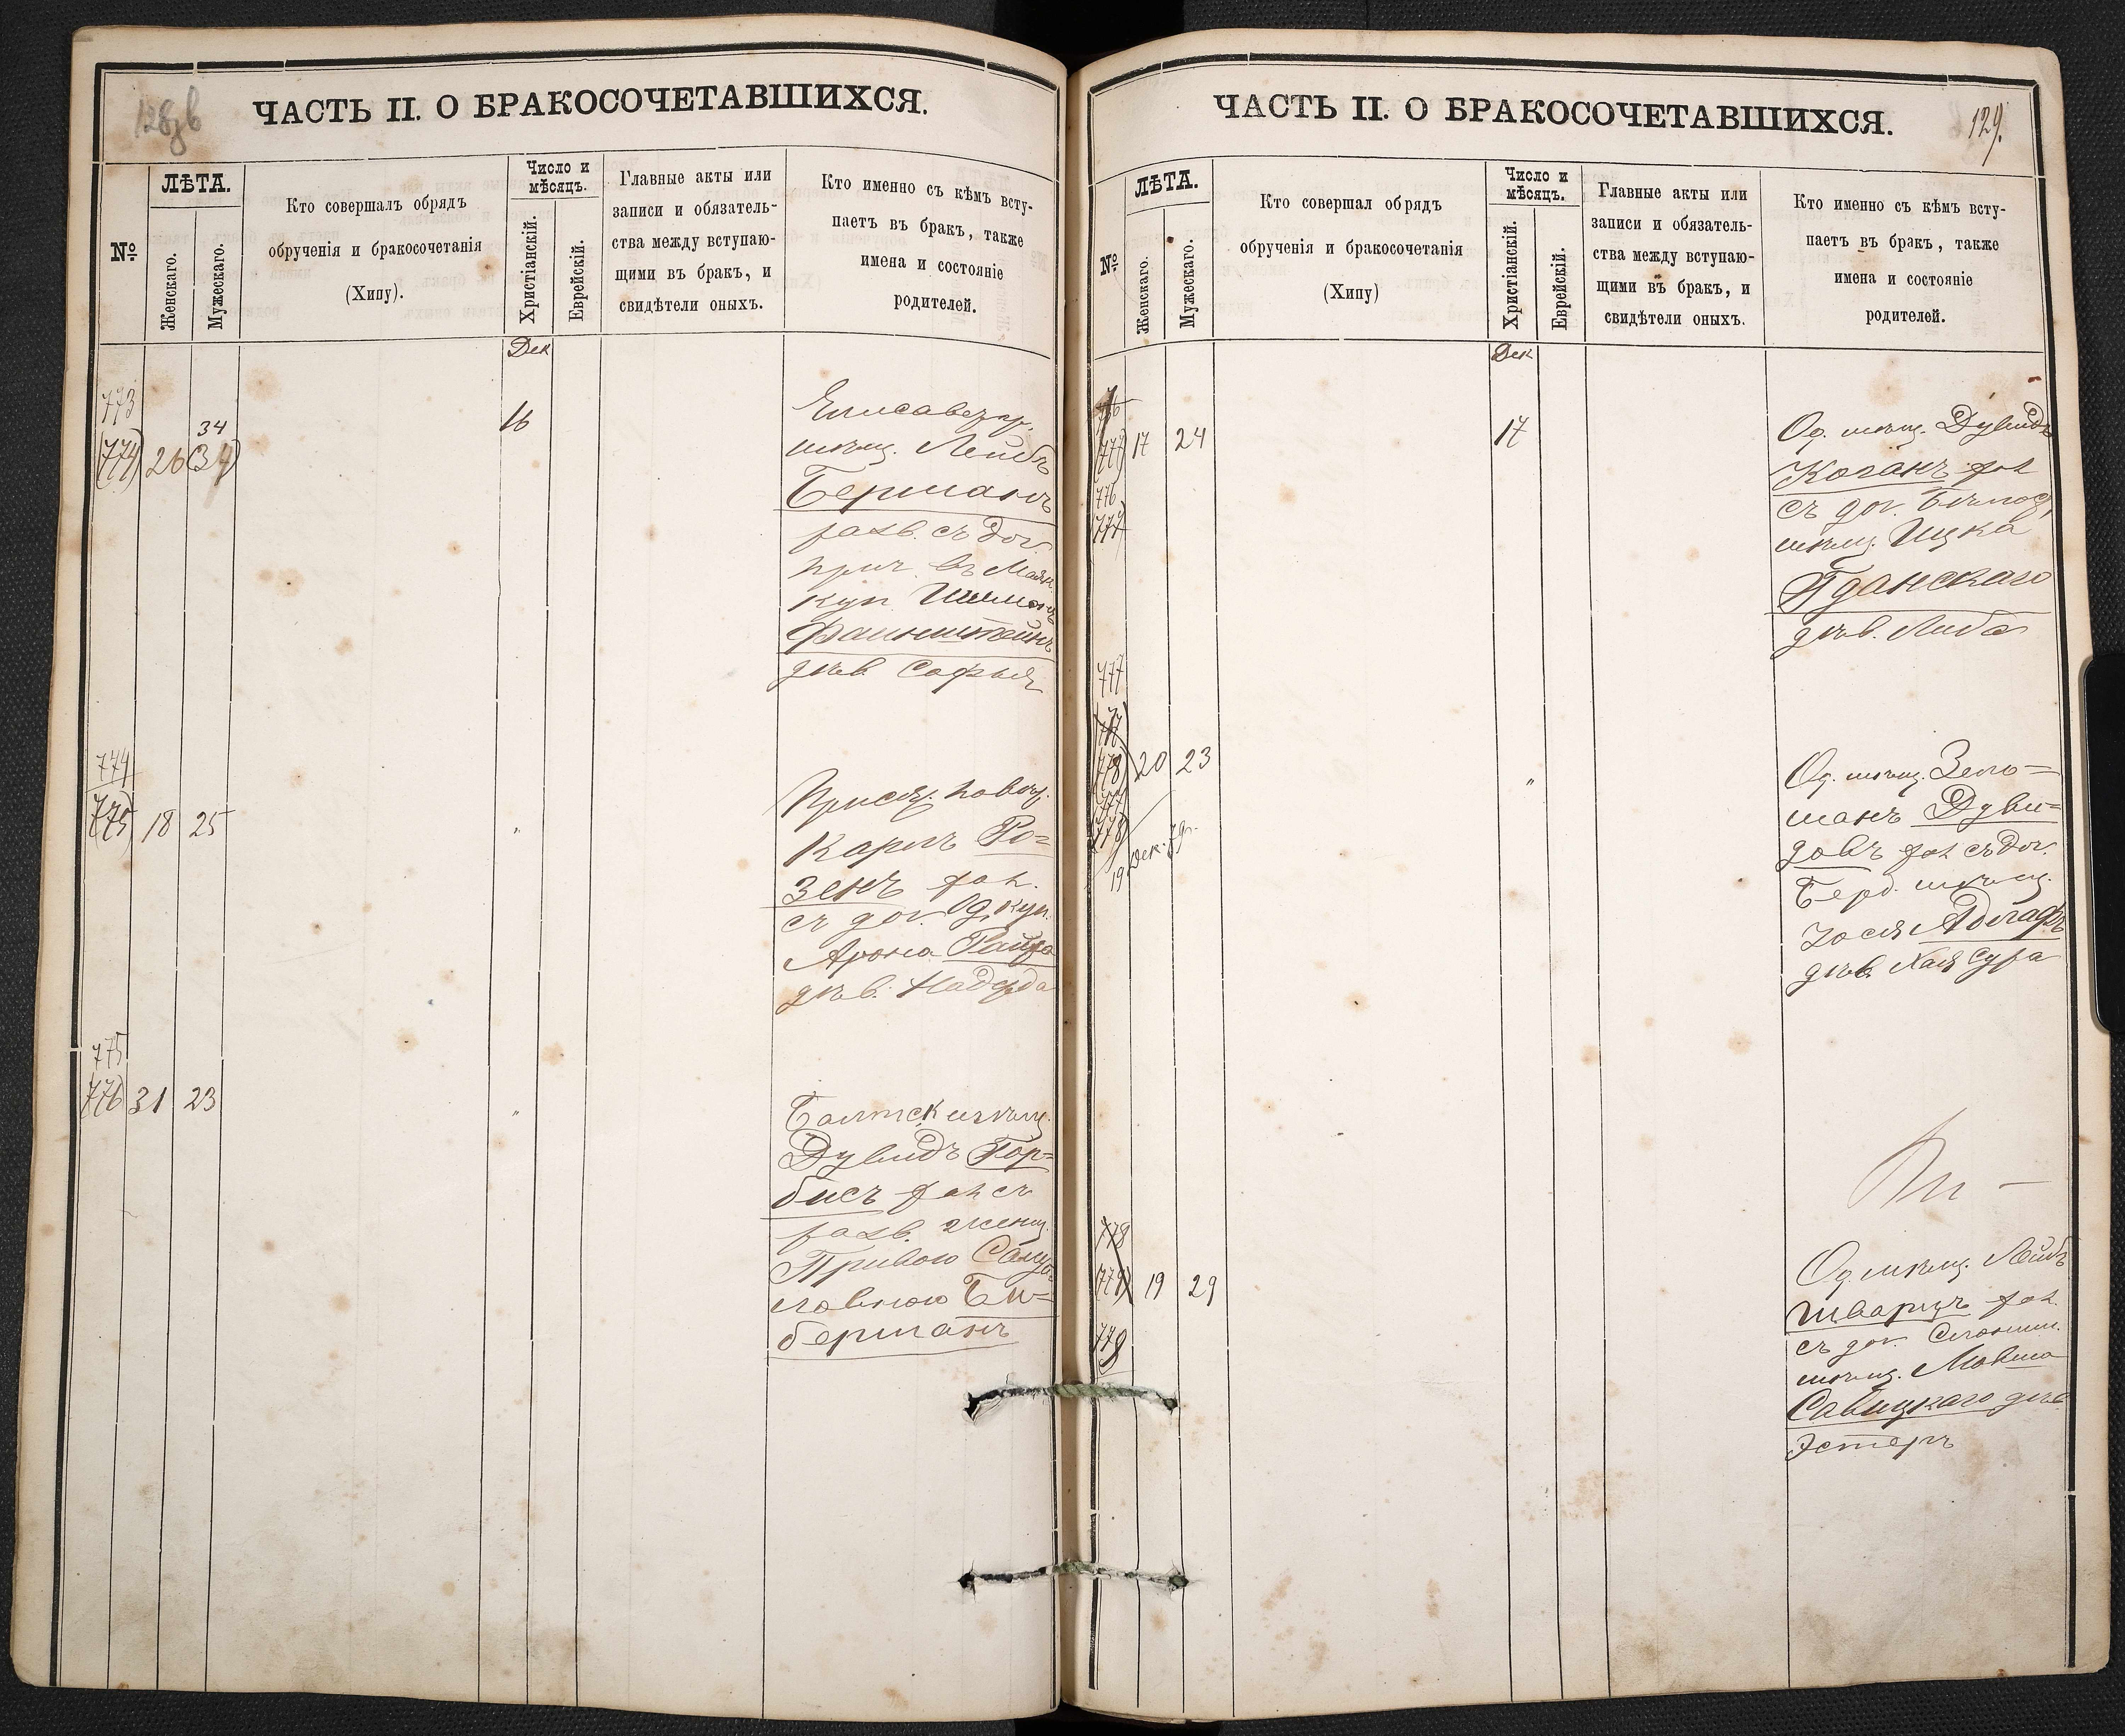 ЧАСТЬ II. О БРАКОСОЧЕТАВШИХСЯ.
№
ЛѢТА.
Женскаго.
Мужескаго.
Кто совершалъ обрядъ
обрученія и бракосочетанія
(Хипу).
Число и
мѣсяцъ.
Христіанскій.
Еврейскій.
Главные акты или
записи и обязатель-
ства между вступаю-
щими въ бракъ, и
свидѣтели оныхъ.
Кто именно съ кѣмъ всту-
паетъ въ бракъ, также
имена и состояніе
родителей.
Дек
773
(774) 26 (34) 34
16
Елисаветгр.
мѣщ. Лейбъ
Берманъ
разв. съ доч.
куп. Шимона
Файнштейнъ
дѣв. Софья
774
(775) 18 25
"
Присяж. повѣр.
Карлъ Ро=
зенъ хол.
съ доч. Од. куп.
Арона
дѣв. Надежда
775
776) 31 23
"
Балтск. мѣщ.
Дувидъ Гор=
бисъ хол съ
разв. женщ.
Привою Саму=
ловною Би=
берманъ
ЧАСТЬ II. О БРАКОСОЧЕТАВШИХСЯ.
129.
№
ЛѢТА.
Женскаго.
Мужескаго.
Кто совершал обрядъ
обрученія и бракосочетанія
(Хипу)
Число и
мѣсяцъ.
Христіанскій.
Еврейскій.
Главные акты или
записи и обязатель-
ства между вступаю-
щими въ бракъ, и
свидѣтели оныхъ.
Кто именно съ кѣмъ всту-
паетъ въ бракъ, также
имена и состояніе
родителей.
Дек
776
(777) 17 24
776
777
17
Од. мѣщ. Дувидъ
Коганъ хол
съ доч. Бѣлоц.
мѣщ. Ицка
Гданскаго
дѣв. Либа
777
(778) 20 23
777
778)
19 Дек. 79 г.
"
Од. мѣщ. Зель=
манъ Дуви=
довъ хол съ доч.
Берд. мѣщ.
Іося
дѣв. Хая Сура
778
(779) 19 29
778
Од. мѣщ. Лейбъ
Шварцъ хол.
съ доч. Слоним.
мѣщ. Мовша
Савицкаго дѣв
Эстеръ